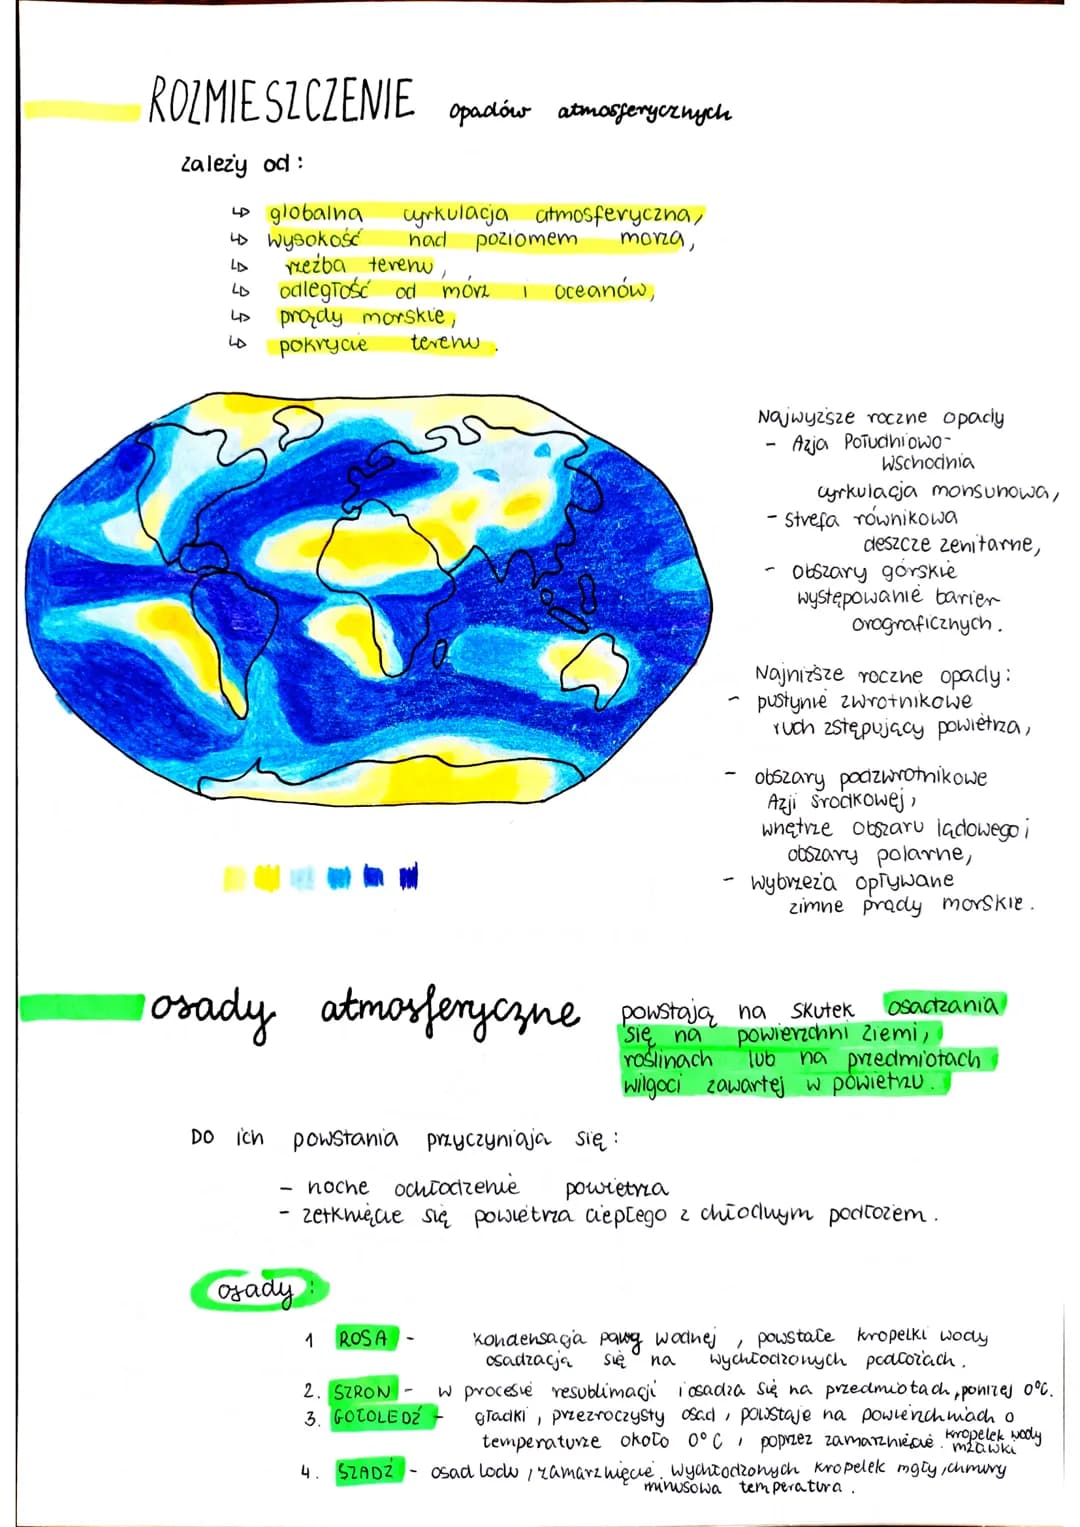 ROZMIESZCZENIE opadów atmosferycznych
zależy od:
↳ globalna cyrkulacja atmosferyczna,
↳ wysokość nad poziomem morza,
↳ rzeźba terenu,
↳ odległość od mórz i oceanów,
↳ prądy morskie,
↳ pokrycie terenu.
Najwyższe roczne opady
- Azja Południowo-
Wschodnia
cyrkulacja monsunowa,
- strefa równikowa
deszcze zenitarne,
- obszary górskie
występowanie barier
orograficznych.
Najniższe roczne opady:
- pustynie zwrotnikowe
ruch zstępujący powietrza,
- obszary podzwrotnikowe
Azji Środkowej,
wnętrze obszaru lądowego i
obszary polarne,
- wybrzeża opływane
zimne prądy morskie.
osady atmosferyczne powstają na skutek osadzania
się na powierzchni Ziemi,
roślinach lub na przedmiotach
wilgoci zawartej w powietrzu.
Do ich powstania przyczyniają się:
- nocne ochłodzenie powietrza
- zetknięcie się powietrza ciepłego z chłodnym podłożem.
osady:
1 ROSA - kondensacja pary wodnej, powstałe kropelki wody
osadzają się na wychłodzonych podłożach.
2. SZRON - w procesie resublimacji i osadza się na przedmiotach, poniżej 0°C.
3. GOŁOLEDŹ - gładki, przezroczysty osad, powstaje na powierzchniach o
temperaturze około 0°C, poprzez zamarznięcie kropelek wody
mżawki
4. SZADŹ - osad lodu, zamarznięcie wychłodzonych kropelek mgły, chmury
minusowa temperatura.